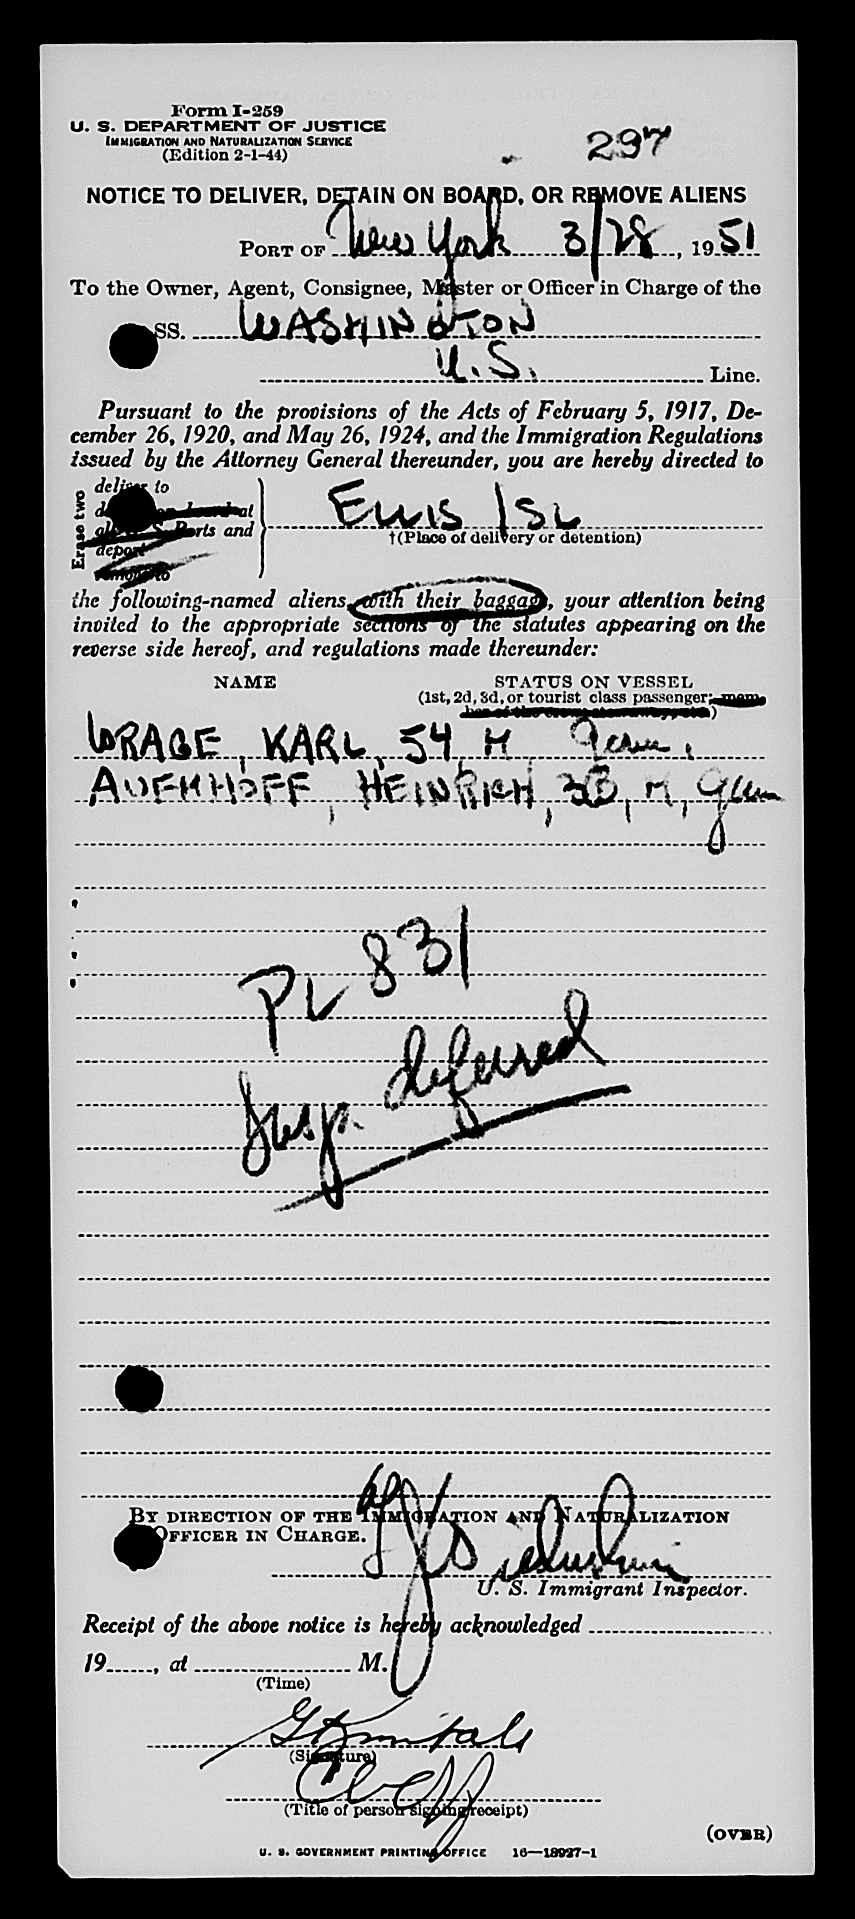 Form I-259
U. S. DEPARTMENT OF JUSTICE
IMMIGRATION AND NATURALIZATION SERVICE
(Edition 2-1-44)
297
NOTICE TO DELIVER, DETAIN ON BOARD, OR REMOVE ALIENS
PORT OF New York 3/28, 1951
To the Owner, Agent, Consignee, Master or Officer in Charge of the
SS. WASHINGTON
U.S. Line.
Pursuant to the provisions of the Acts of February 5, 1917, De-
cember 26, 1920, and May 26, 1924, and the Immigration Regulations
issued by the Attorney General thereunder, you are hereby directed to
Erase two
deliver to
board at
Ports and
deport
remove to
ELLIS ISL
†(Place of delivery or detention)
the following-named aliens, with their baggage, your attention being
invited to the appropriate sections of the statutes appearing on the
reverse side hereof, and regulations made thereunder:
NAME STATUS ON VESSEL
(1st, 2d, 3d, or tourist class passenger; mem-
WRAGE, KARL, 54, M Germ.
HEINRICH, 38, M, Germ
PL 831
deferred
BY DIRECTION OF THE IMMIGRATION AND NATURALIZATION
OFFICER IN CHARGE.
U. S. Immigrant Inspector.
Receipt of the above notice is hereby acknowledged
19, at M.
(Time)
(Signature)
(Title of person signing receipt)
(OVER)
U. S. GOVERNMENT PRINTING OFFICE 16—18927-1